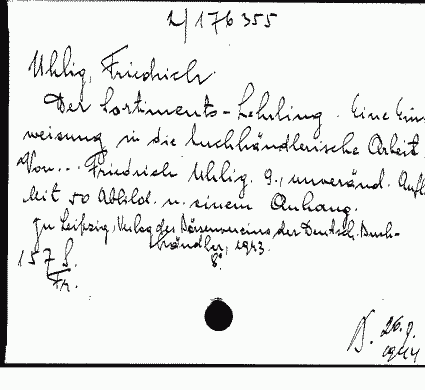 2/176355
Uhlig, Friedrich
Der Sortiments-Lehrling. Eine Ein-
weisung in die buchhändlerische Arbeit
Von... Friedrich Uhlig. 9., unveränd. Aufl.
Mit 50 Abbild. u. einem Anhang.
zu Leipzig, Verlag des Börsenvereins der Deutsch. Buch-
händler, 1943.
157 S. 8°
Fr.
26.9.
1944